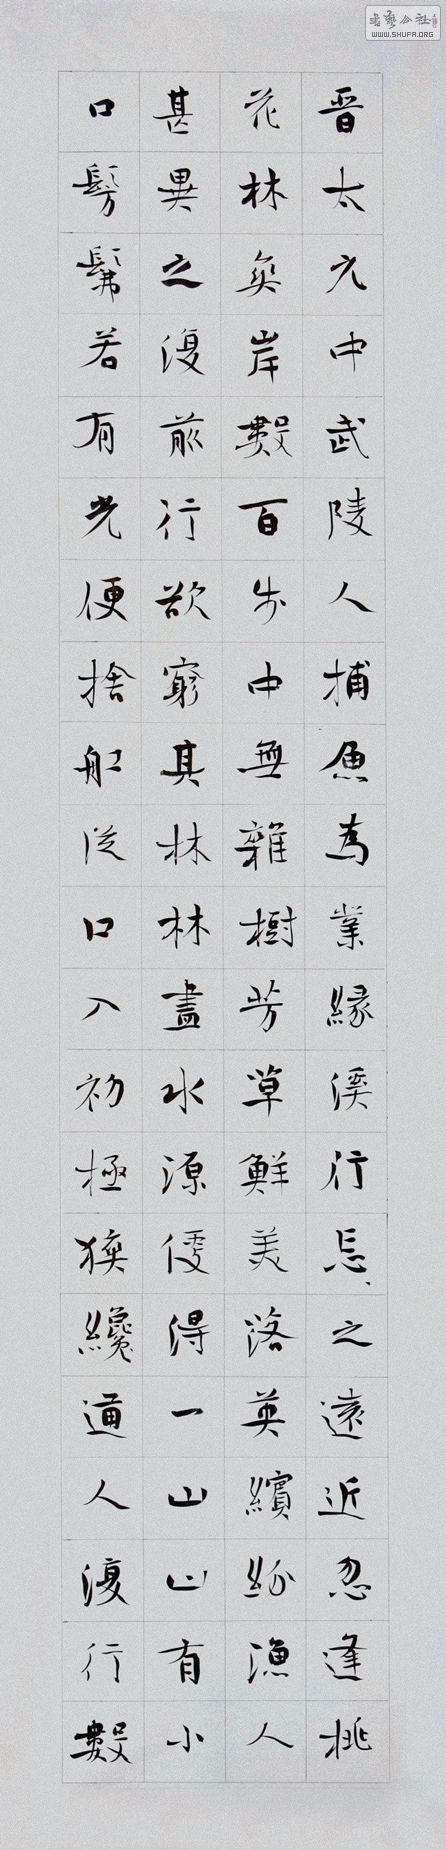 晋太元中武陵人捕魚為業緣溪行忘之遠近忽逢桃
花林夾岸數百步中無雜樹芳草鮮美落英繽紛漁人
甚異之復前行欲窮其林林盡水源便得一山山有小
口髣髴若有光便捨船從口入初極狹纔通人復行數
書藝公社
WWW.SHUFA.ORG